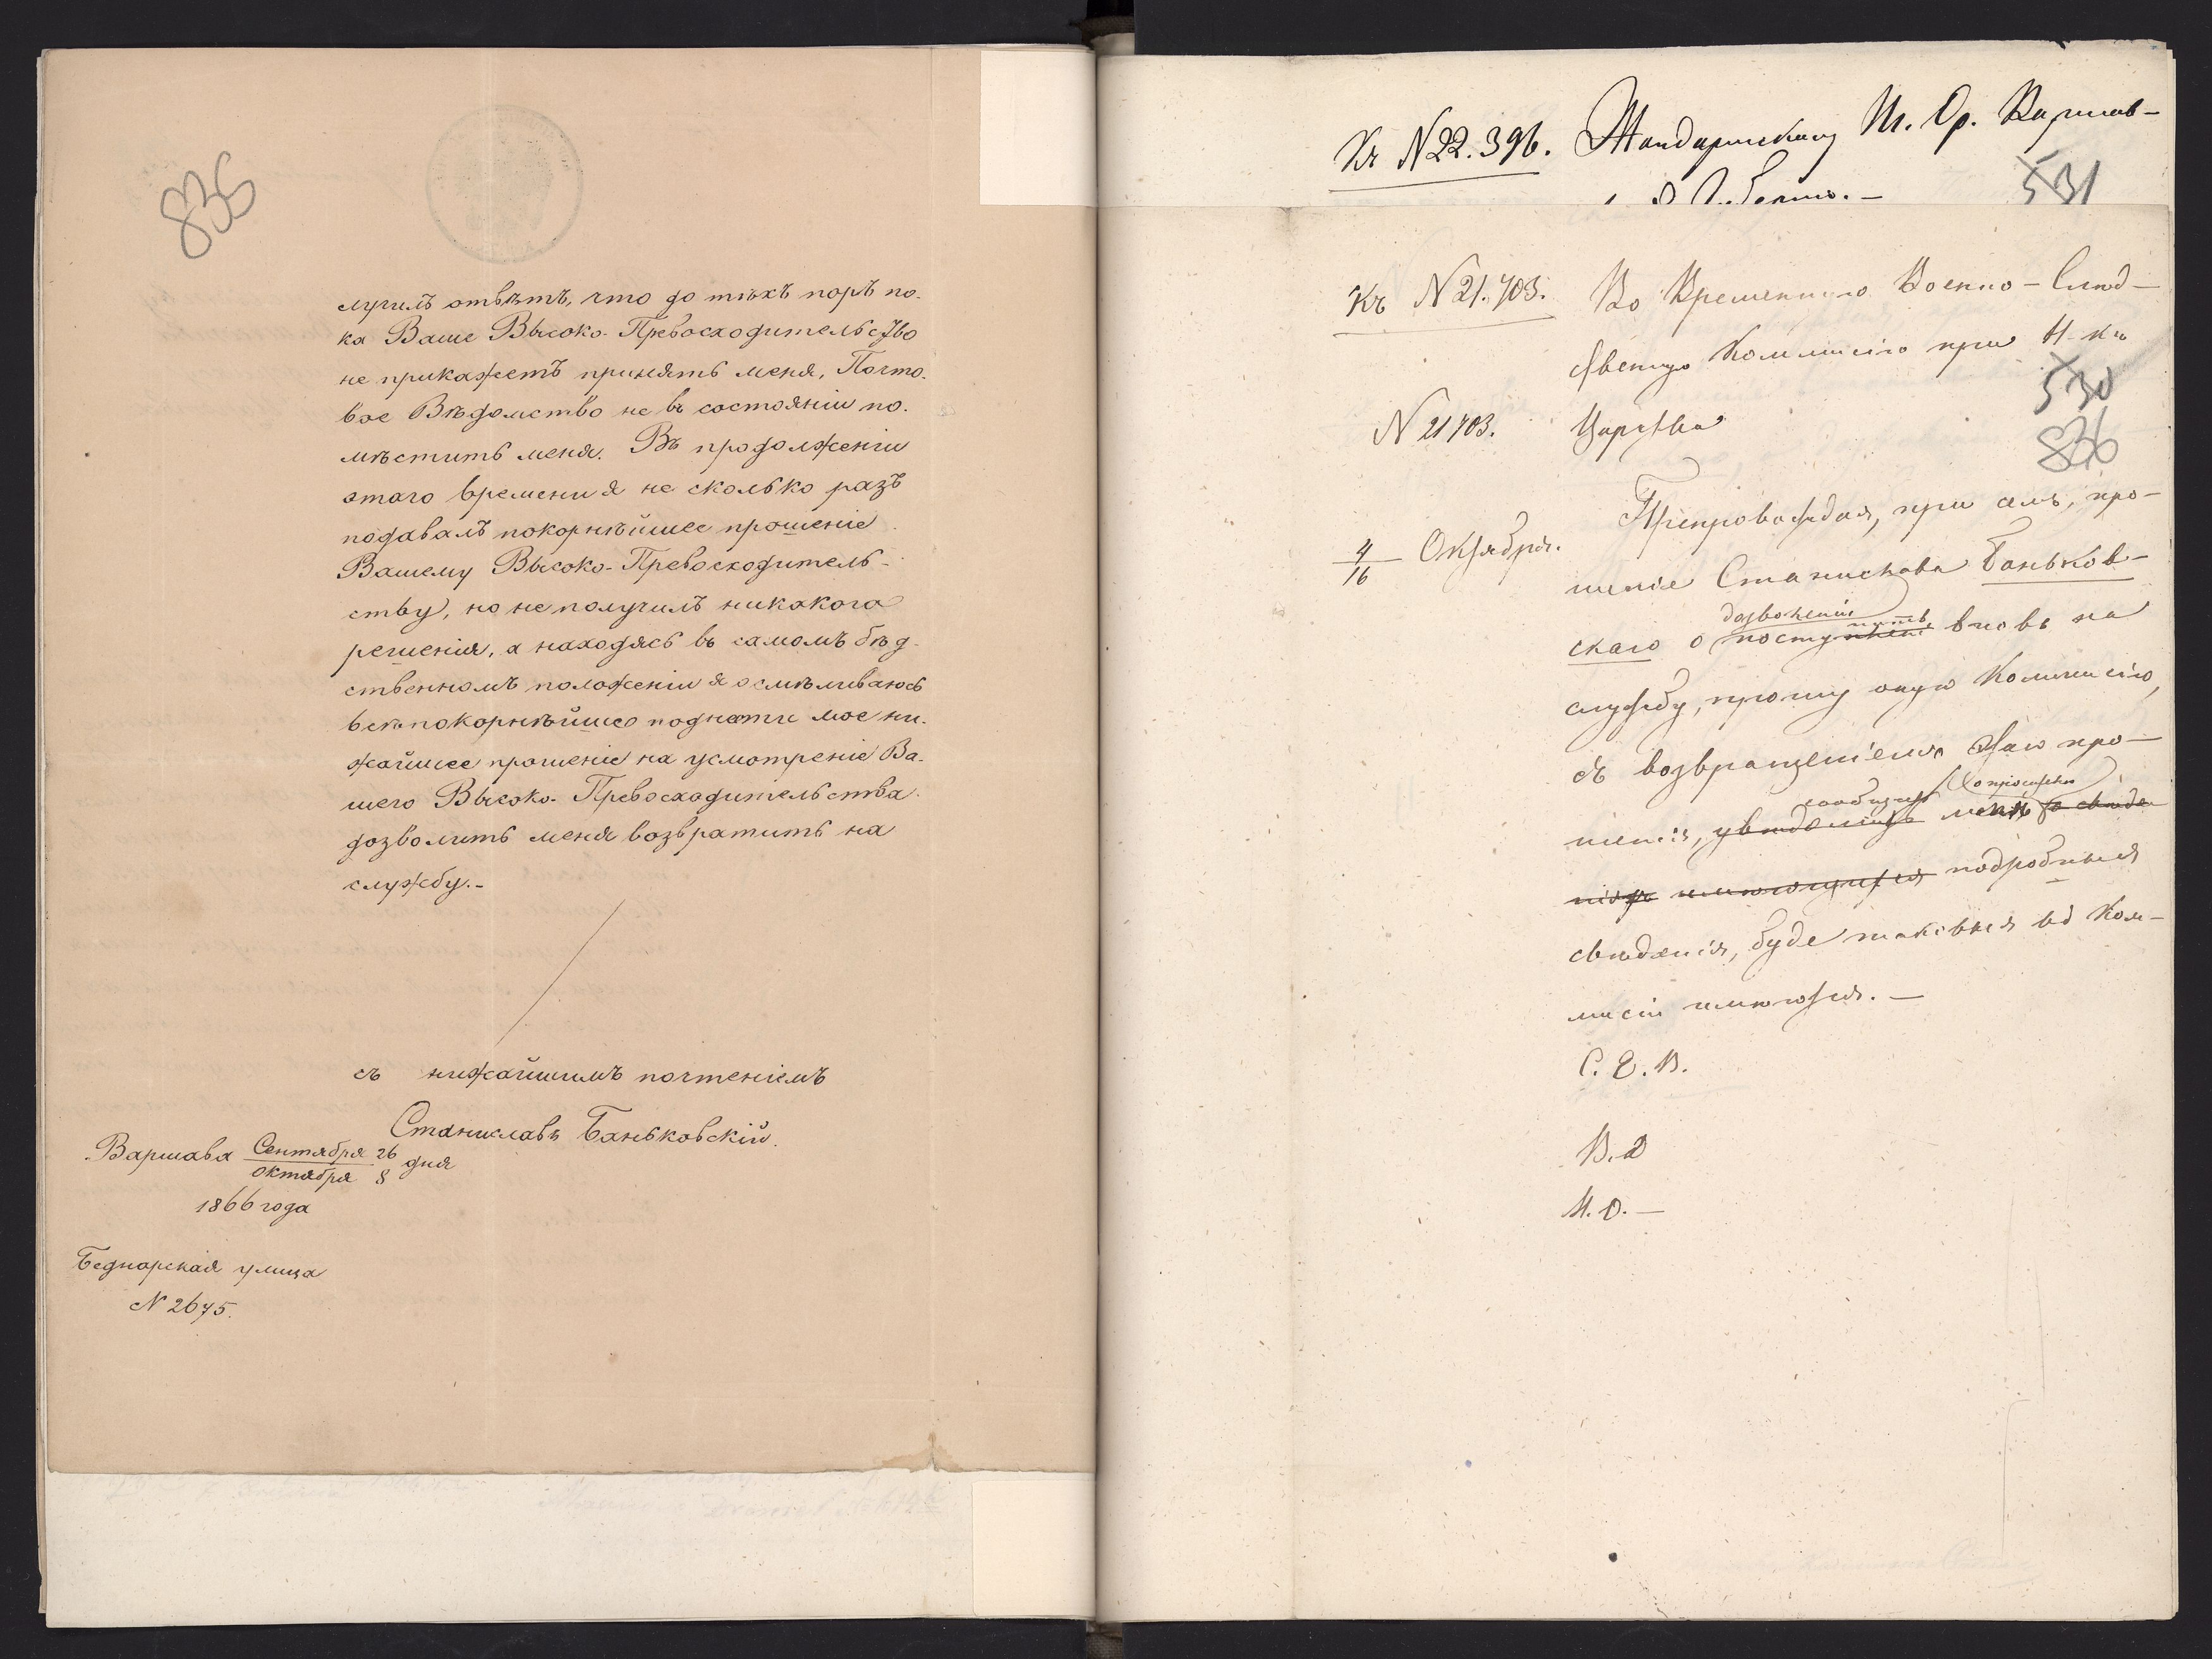 836
лучилъ отвѣтъ, что до тѣхъ поръ по-
ка Ваше Высоко-Превосходительство
не прикажетъ принять меня, Почто-
вое Вѣдомство не въ состояніи по-
мѣстить меня. Въ продолженіи
этаго времени я не сколько разъ
подавалъ покорнѣйшее прошеніе
Вашему Высоко-Превосходитель-
ству, но не получилъ никакого
решенія, а находясь въ самомъ бѣд-
ственномъ положеніи я осмѣливаюсь
всѣпокорнѣйшее поднести мое ни-
жайшее прошеніе на усмотреніе Ва-
шего Высоко-Превосходительства
дозволить меня возвратить на
службу.-
съ нижайшимъ почтеніемъ
Станиславъ Баньковскій.
Варшава Сентября 26 дня
Октября 8
1866 года
Беднарская улица
№ 2675.
Къ №22.396. Жандармскому Шт. Оф. Варшав-
531
Къ №21.703. Во Временную Военно-Слѣд-
ственную Коммисію при Н-кѣ
530
№ 21703. Царства
836
Препровождая, при семъ, про-
4/16 Октября.
шеніе Станислава Баньков-
дозволеніи
скаго о поступить вновь на
службу, прошу оную Коммисію,
съ возвращеніемъ этаго про-
сообщить
шенія, увѣдомить мнѣ о свѣдѣ-
ніяхъ имеющихся подробныя
свѣдѣнія, буде таковыя въ Ком-
мисіи имеются. —
С. Е. В.
В. Д
Н. О. —